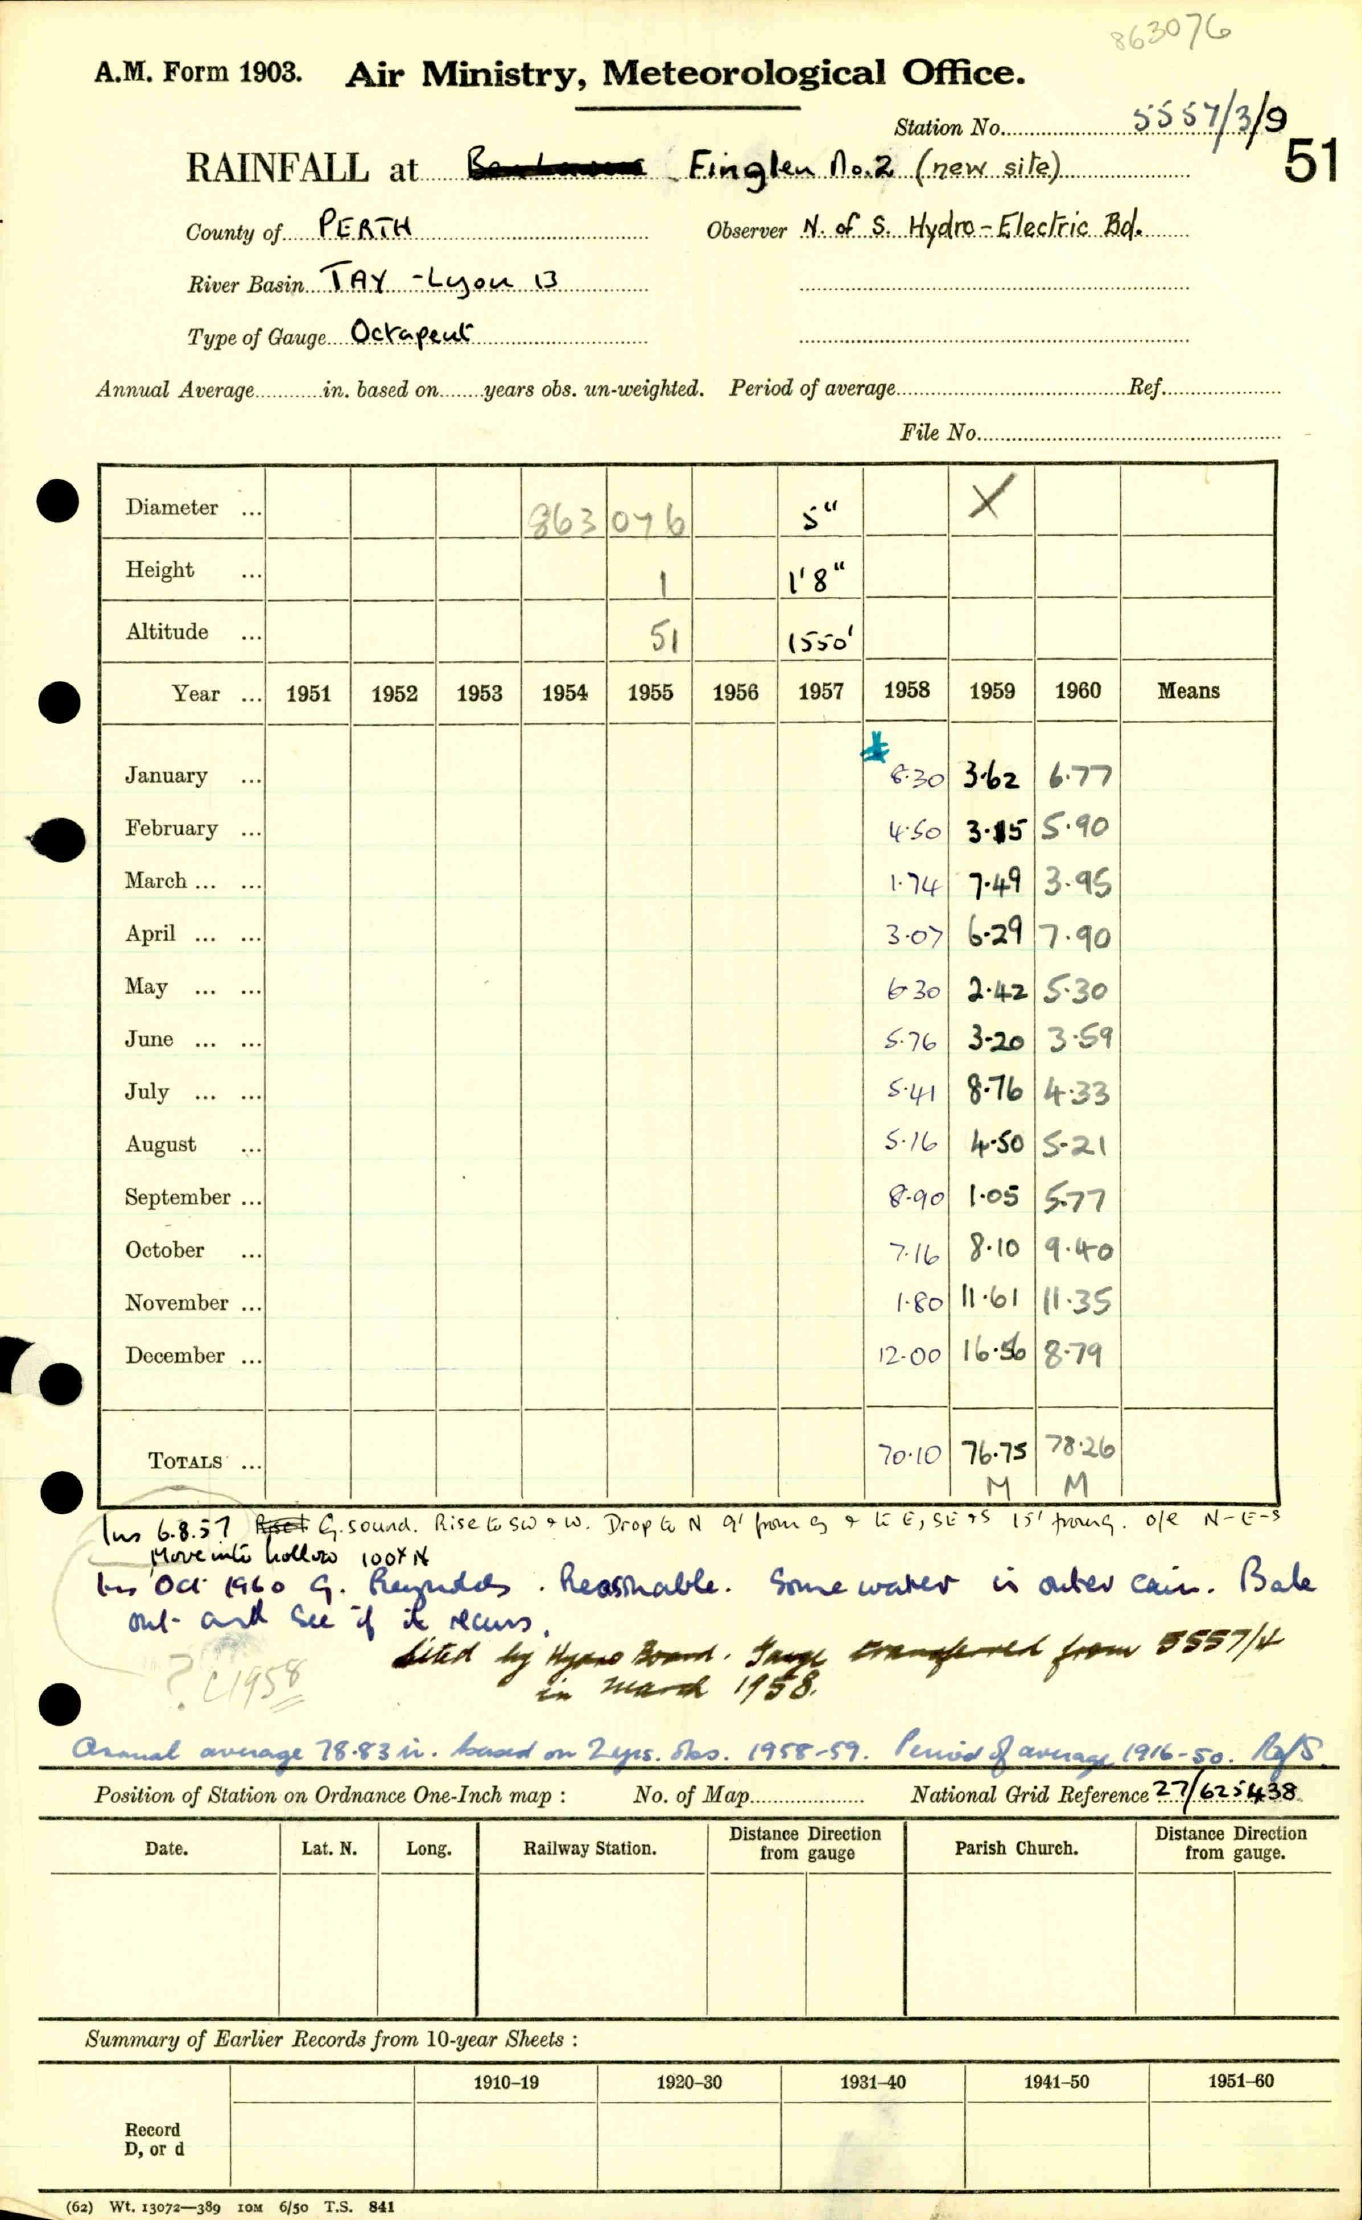 863076
A.M. Form 1903. Air Ministry, Meteorological Office.
Station No. 5557/3/9
51
RAINFALL at Finglen No.2 (new site)
County of PERTH Observer N. of S. Hydro-Electric Bd.
River Basin TAY - Lyon 13
Type of Gauge Octapent
Annual Average in. based on years obs. un-weighted. Period of average Ref.
File No.
Diameter ... 863 076 5" X
Height ... 1 1'8"
Altitude ... 51 1550'
Year ... 1951 1952 1953 1954 1955 1956 1957 1958 1959 1960 Means
January ... 8.30 3.62 6.77
February ... 4.50 3.15 5.90
March ... ... 1.74 7.49 3.95
April ... ... 3.07 6.29 7.90
May ... ... 6.30 2.42 5.30
June ... ... 5.76 3.20 3.59
July ... ... 5.41 8.76 4.33
August ... 5.16 4.50 5.21
September ... 8.90 1.05 5.77
October ... 7.16 8.10 9.40
November ... 1.80 11.61 11.35
December ... 12.00 16.56 8.79
TOTALS ... 70.10 76.75 78.26
M M
Ins 6.8.57 G. sound. Rise to SW & W. Drop to N 9' from G & to E, SE & S 15' from G. o/e N-E-S
Move into hollow 100x N
Ins Oct 1960 G. Reynolds. Reasonable. Some water in outer can. Bale
out and see if it recurs.
Sited by Hydro Board. Gauge transferred from 5557/4
in March 1958.
? c1958
Annual average 78.83 in. based on 2 yrs. obs. 1958-59. Period of average 1916-50. Ref S.
Position of Station on Ordnance One-Inch map : No. of Map National Grid Reference 27/625438
Date. Lat. N. Long. Railway Station. Distance from gauge Direction Parish Church. Distance from gauge. Direction
Summary of Earlier Records from 10-year Sheets :
1910-19 1920-30 1931-40 1941-50 1951-60
Record
D, or d
(62) Wt. 13072—389 10M 6/50 T.S. 841